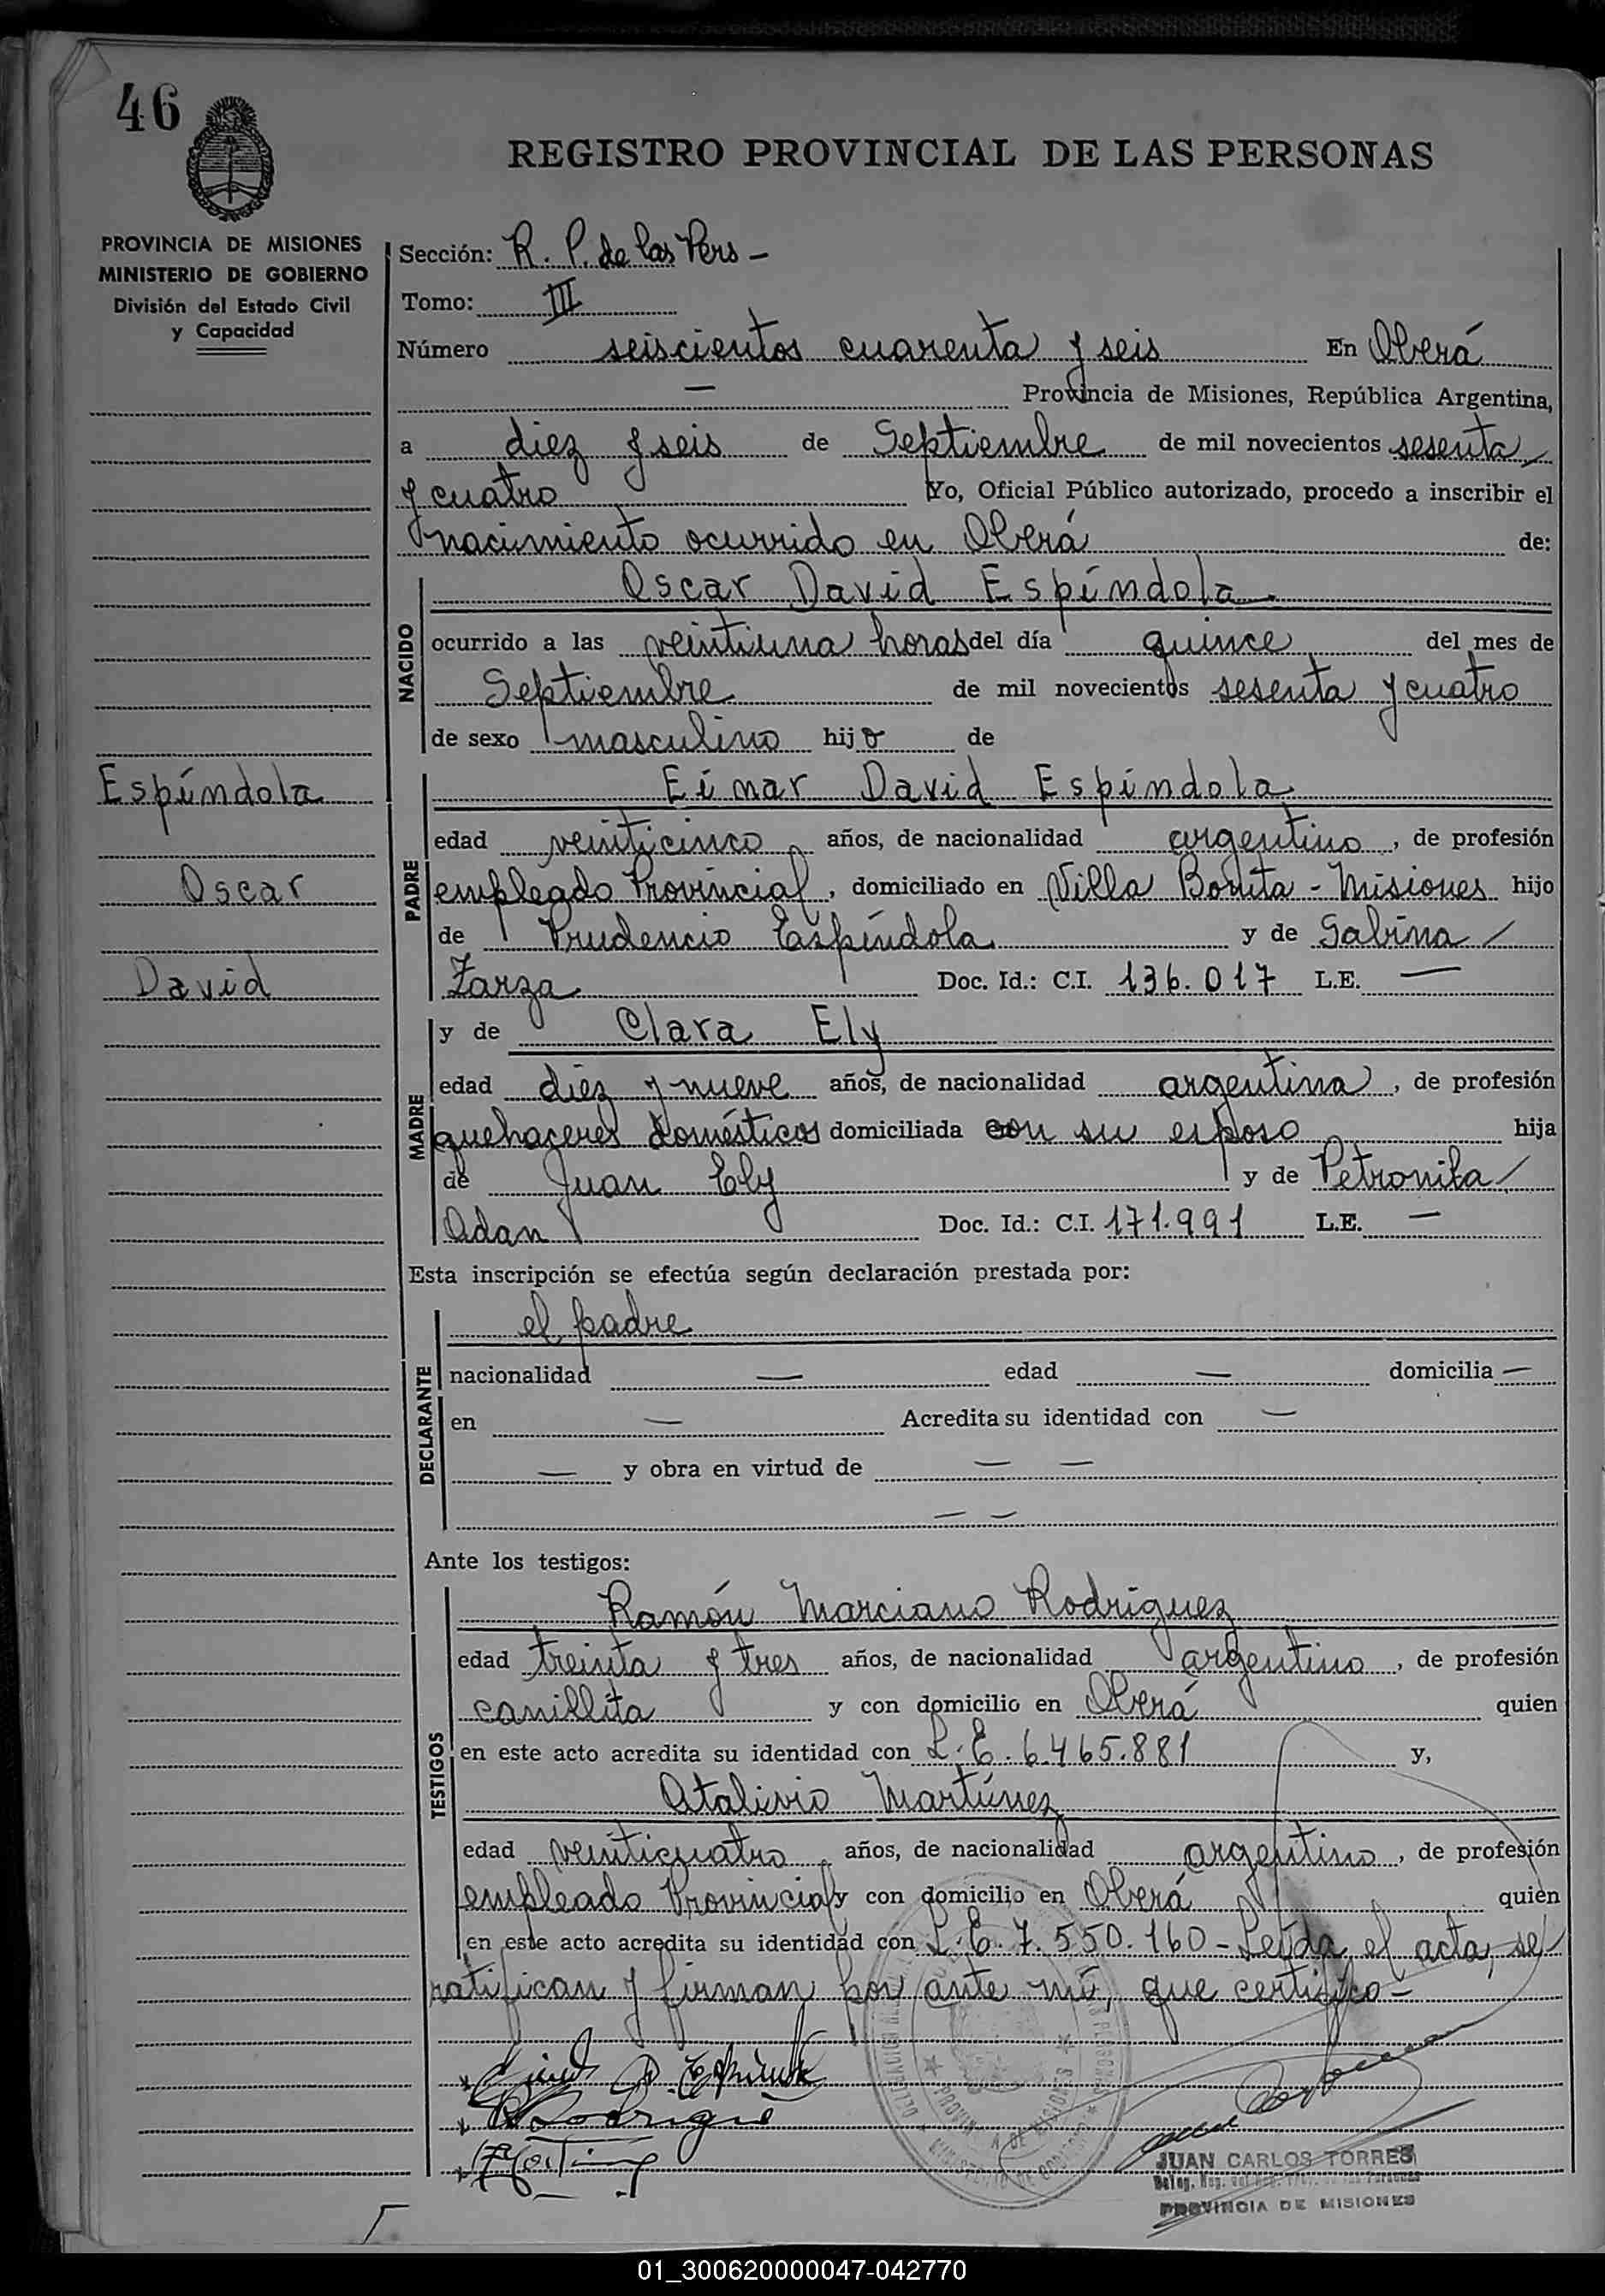 46
REGISTRO PROVINCIAL DE LAS PERSONAS
PROVINCIA DE MISIONES
MINISTERIO DE GOBIERNO
División del Estado Civil
y Capacidad
Sección: R. P. de las Pers -
Tomo: III
Número seiscientos cuarenta y seis En Oberá
— Provincia de Misiones, República Argentina,
a diez y seis de Septiembre de mil novecientos sesenta
y cuatro Yo, Oficial Público autorizado, procedo a inscribir el
nacimiento ocurrido en Oberá de:
NACIDO
Oscar David Espíndola
ocurrido a las veintiuna horas del día quince del mes de
Septiembre de mil novecientos sesenta y cuatro
de sexo masculino hijo de
Espíndola
Oscar
David
PADRE
Eínar David Espíndola
edad veinticinco años, de nacionalidad argentino, de profesión
empleado Provincial, domiciliado en Villa Bonita - Misiones hijo
de Prudencio Espíndola y de Sabina
Zarza Doc. Id.: C.I. 136.017 L.E. —
MADRE
y de Clara Ely
edad diez y nueve años, de nacionalidad argentina, de profesión
quehaceres domésticos domiciliada con su esposo hija
de Juan Ely y de Petronila
Adan Doc. Id.: C.I. 171.991 L.E. —
Esta inscripción se efectúa según declaración prestada por:
DECLARANTE
el padre
nacionalidad — edad — domicilia —
en — Acredita su identidad con —
— y obra en virtud de — —
— —
Ante los testigos:
TESTIGOS
Ramón Marciano Rodriguez
edad treinta y tres años, de nacionalidad argentino, de profesión
canillita y con domicilio en Oberá quien
en este acto acredita su identidad con L.E. 6.465.881 y,
Atalivio Martínez
edad veinticuatro años, de nacionalidad argentino, de profesión
empleado Provincial y con domicilio en Oberá quien
en este acto acredita su identidad con L.E. 7.550.160 - Leída el acta, se
ratifican y firman por ante mí, que certifico -
JUAN CARLOS TORRES
PROVINCIA DE MISIONES
01_300620000047-042770